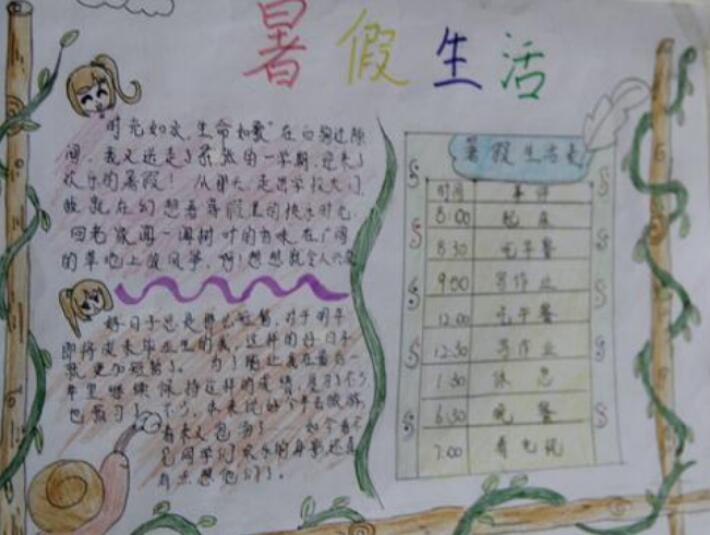 暑假生活
时光如水,生命如歌"在白驹过隙
间,我又送走了紧张的一学期,迎来了
欢乐的暑假! 从那天,走出学校大门,
我就在幻想着暑假里的快乐时光,
回老家闻一闻树叶的香味在广阔
的草地上放风筝,啊!想想就令人兴奋
好日子总是那么短暂,对于明年
即将成来毕业生的我,这样的好日子
就更加短暂了。 为了能让我在最后一
年里继续保持这样的成绩,复习了不少
也预习了不少,本来说好今年去旅游,
看来又泡汤了 如今看不
见同学们欢乐的身影还真
有点想他们了。
暑假生活表
时间 事件
8:00 起床
8:30 吃早餐
9:00 写作业
12:00 吃午餐
12:30 写作业
1:30 休息
6:30 晚餐
7:00 看电视